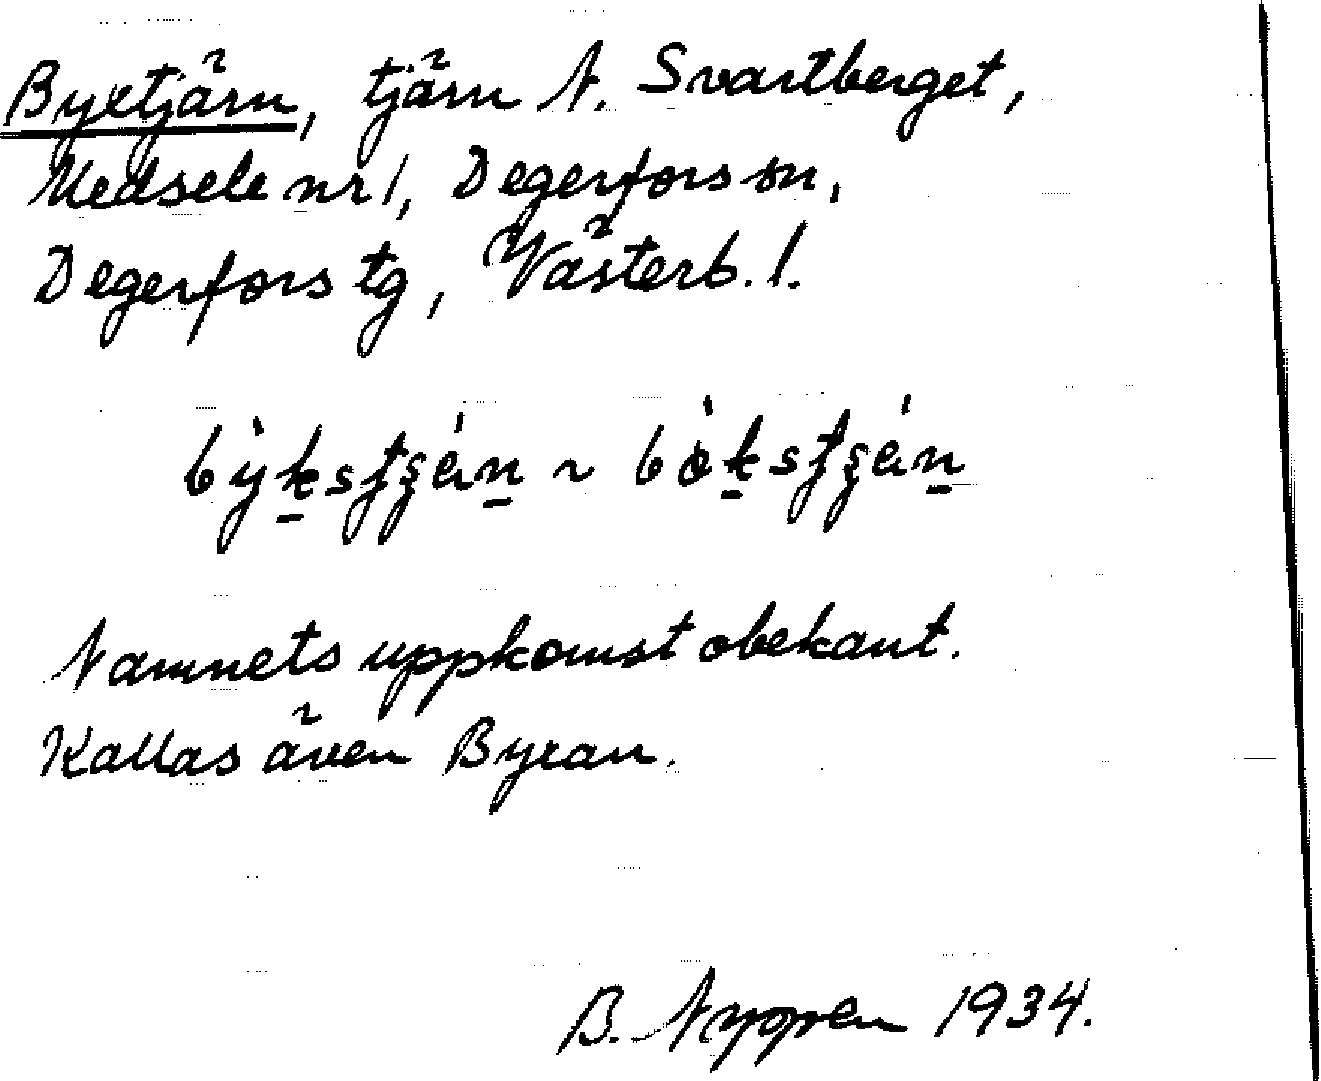 Byxtjärn, tjärn N. Svartberget,
Medsele nr 1, Degerfors sn,
Degerfors tg, Västerb. l.
Namnets uppkomst obekant.
Kallas även Byxan.
B. 1934.